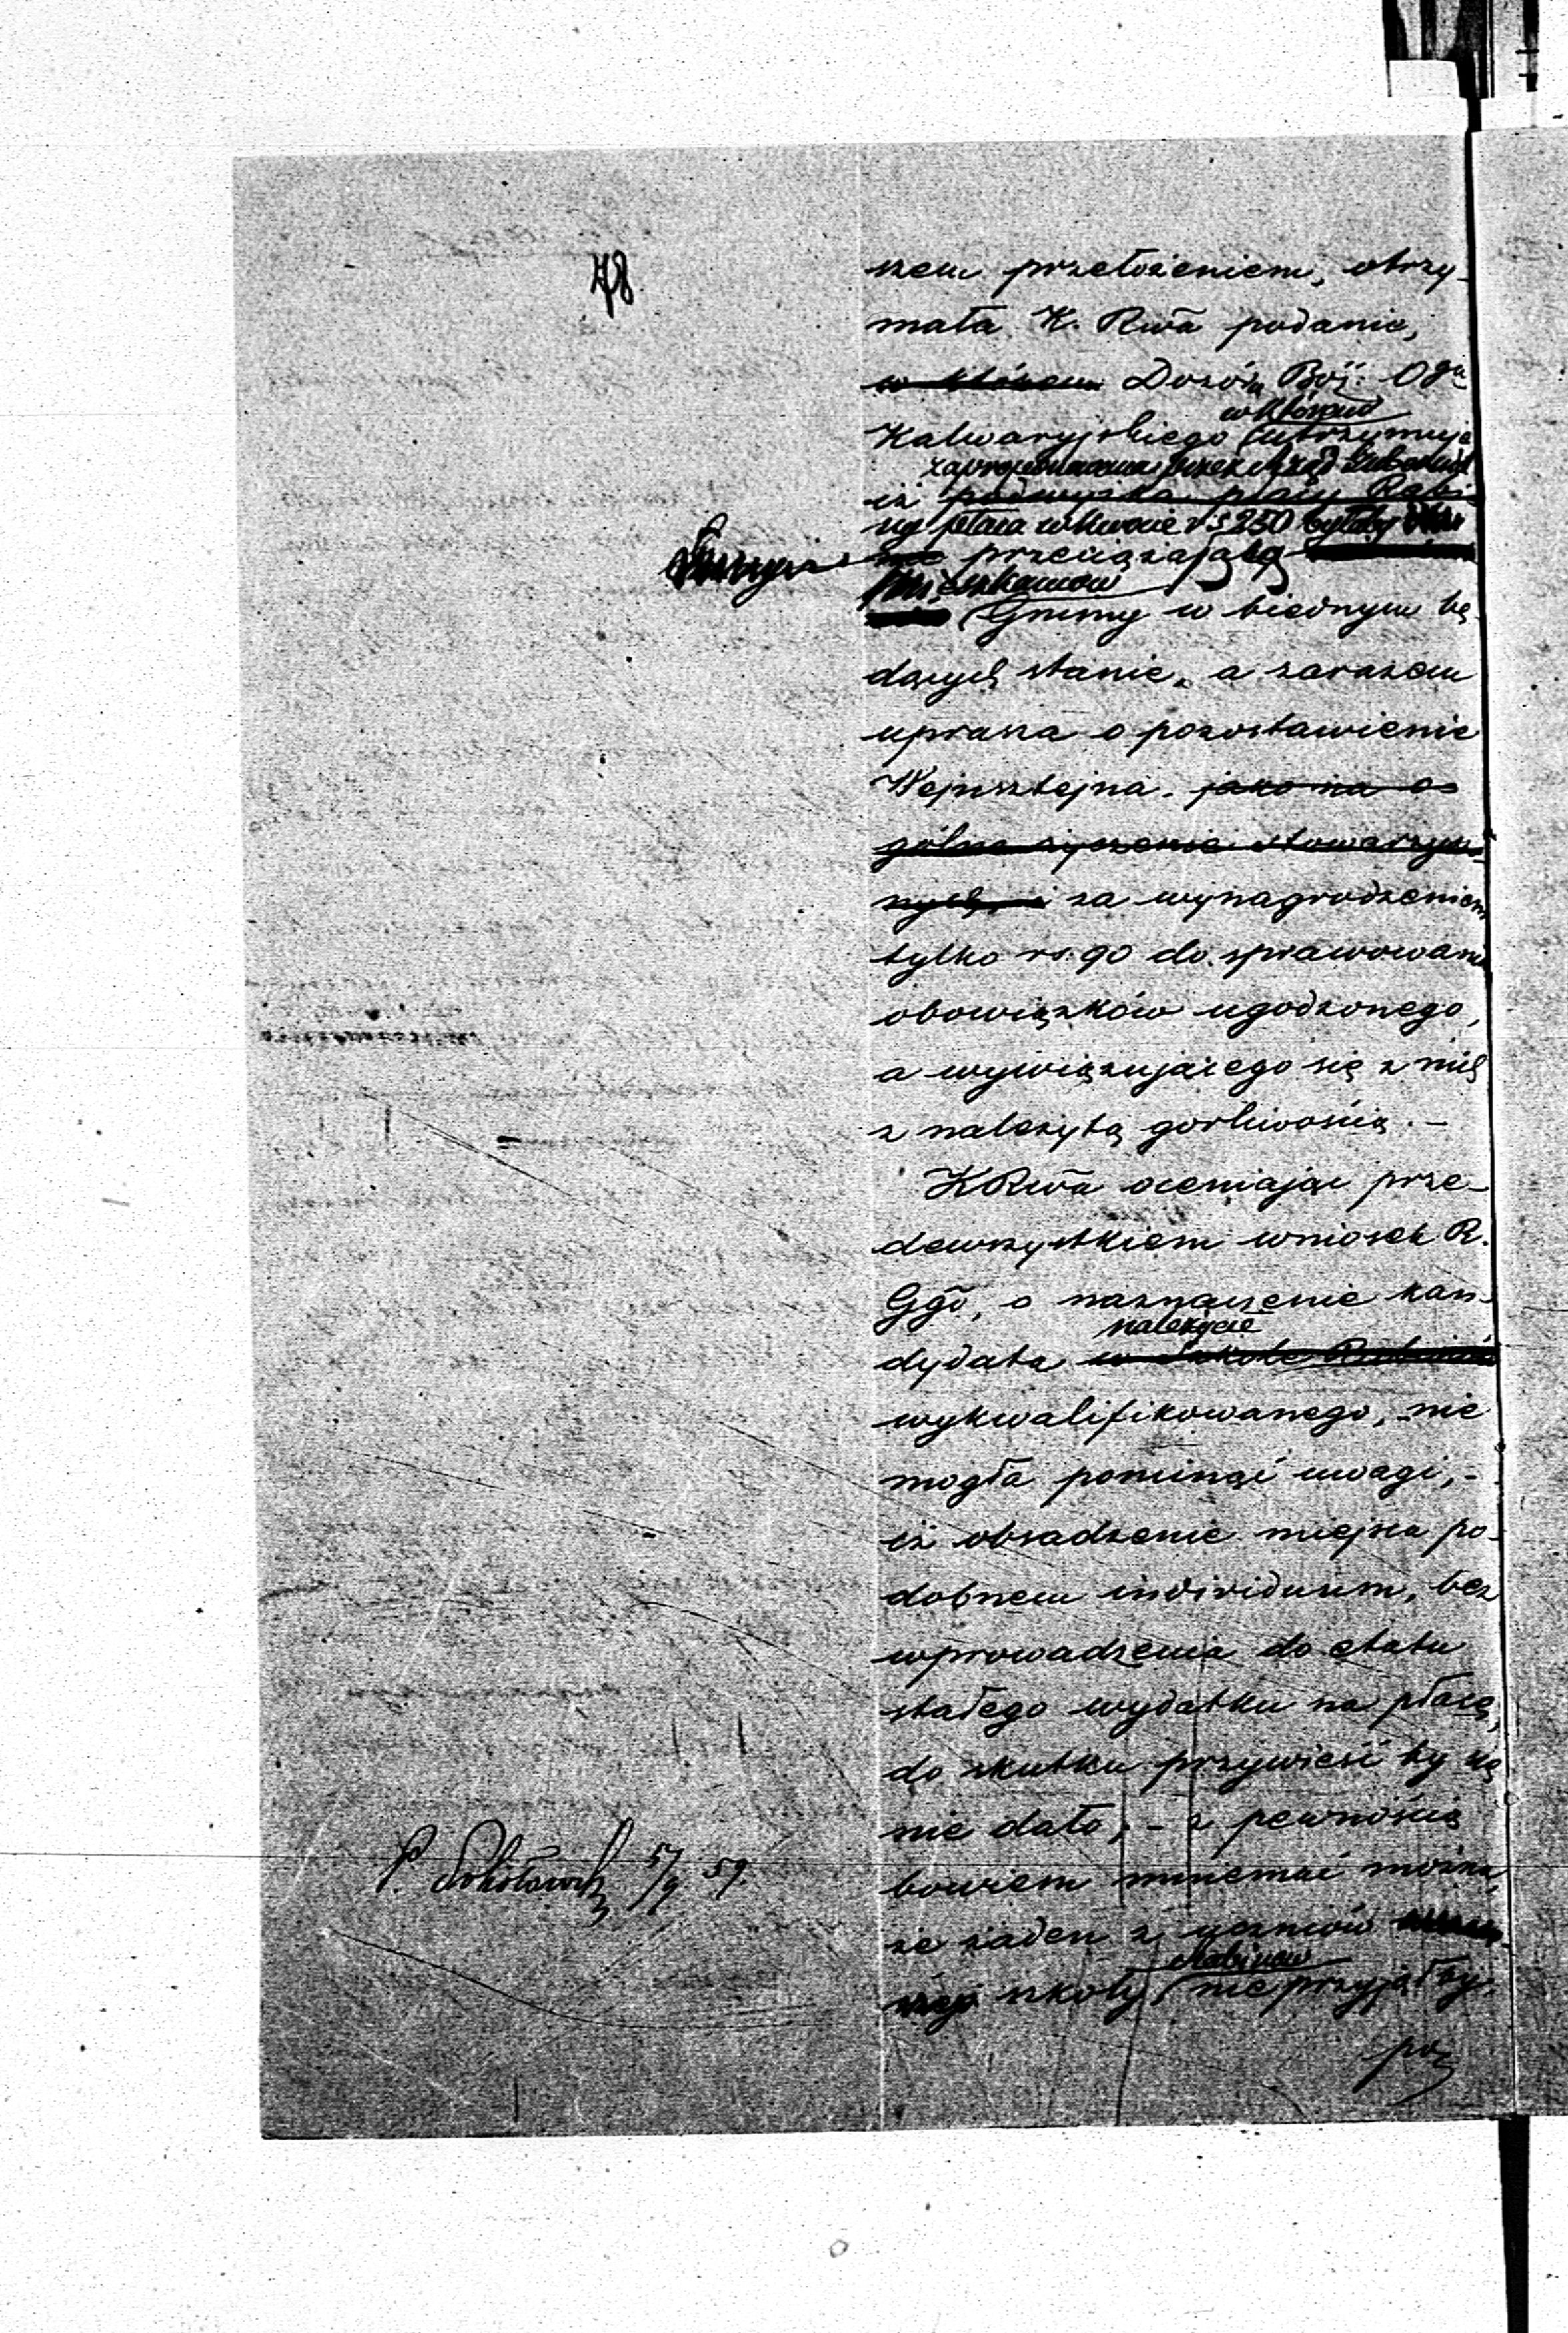 78
szem przełożeniem, otrzy-
mała K. Rwã podanie,
w którem Dozóru Boż: Ogu
w którem
Kalwaryjskiego utrzymuje
zaprojektowana przez Rząd Gubernial
iż podwyżka płacy Rabi
ny płaca w kwocie rs 250 byłaby
przeciążającą
mieszkańców
Gminy w biednym bę-
dących stanie, a zarazem
uprasza o pozostawienie
Wejnsztejna. jako na o-
gólne życzenie stowarzyszo
nych, i za wynagrodzeniem
tylko rs. 90 do sprawowania
obowiązków ugodzonego,
a wywiązującego się z nich
z należytą gorliwością. –
KRwã oceniając prze-
dewszystkiem wniosek R.
Ggõ, o naznaczenie kan-
należycie
dydata w Szkole Rabinów
wykwalifikowanego, nie
mogła pominąć uwagi, -
iż obsadzenie miejsca po-
dobnem individuum, bez
wprowadzenia do etatu
stałego wydatku na płacę,
do skutku przywieść by się
nie dało, - z pewnością
bowiem mniemać można,
że żaden z uczniów
Rabinów
szkoły nie przyjąłby.
po
P. Sokołowski 5/9 59.